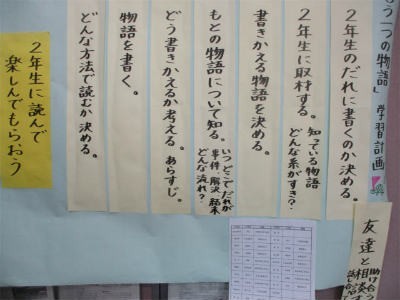 う一つの物語」 学習計画
2年生のだれに書くのか決める。
2年生に取材する。
知っている物語
どんな系がすき?
書きかえる物語を決める。
もとの物語について知る。
いつどこでだれが
事件、解決、結末
どんな流れ?
どう書きかえるか考える。あらすじ。
物語を書く。
どんな方法で読むか決める。
2年生に読んで
楽しんでもらおう
友達と
助け合う
相談